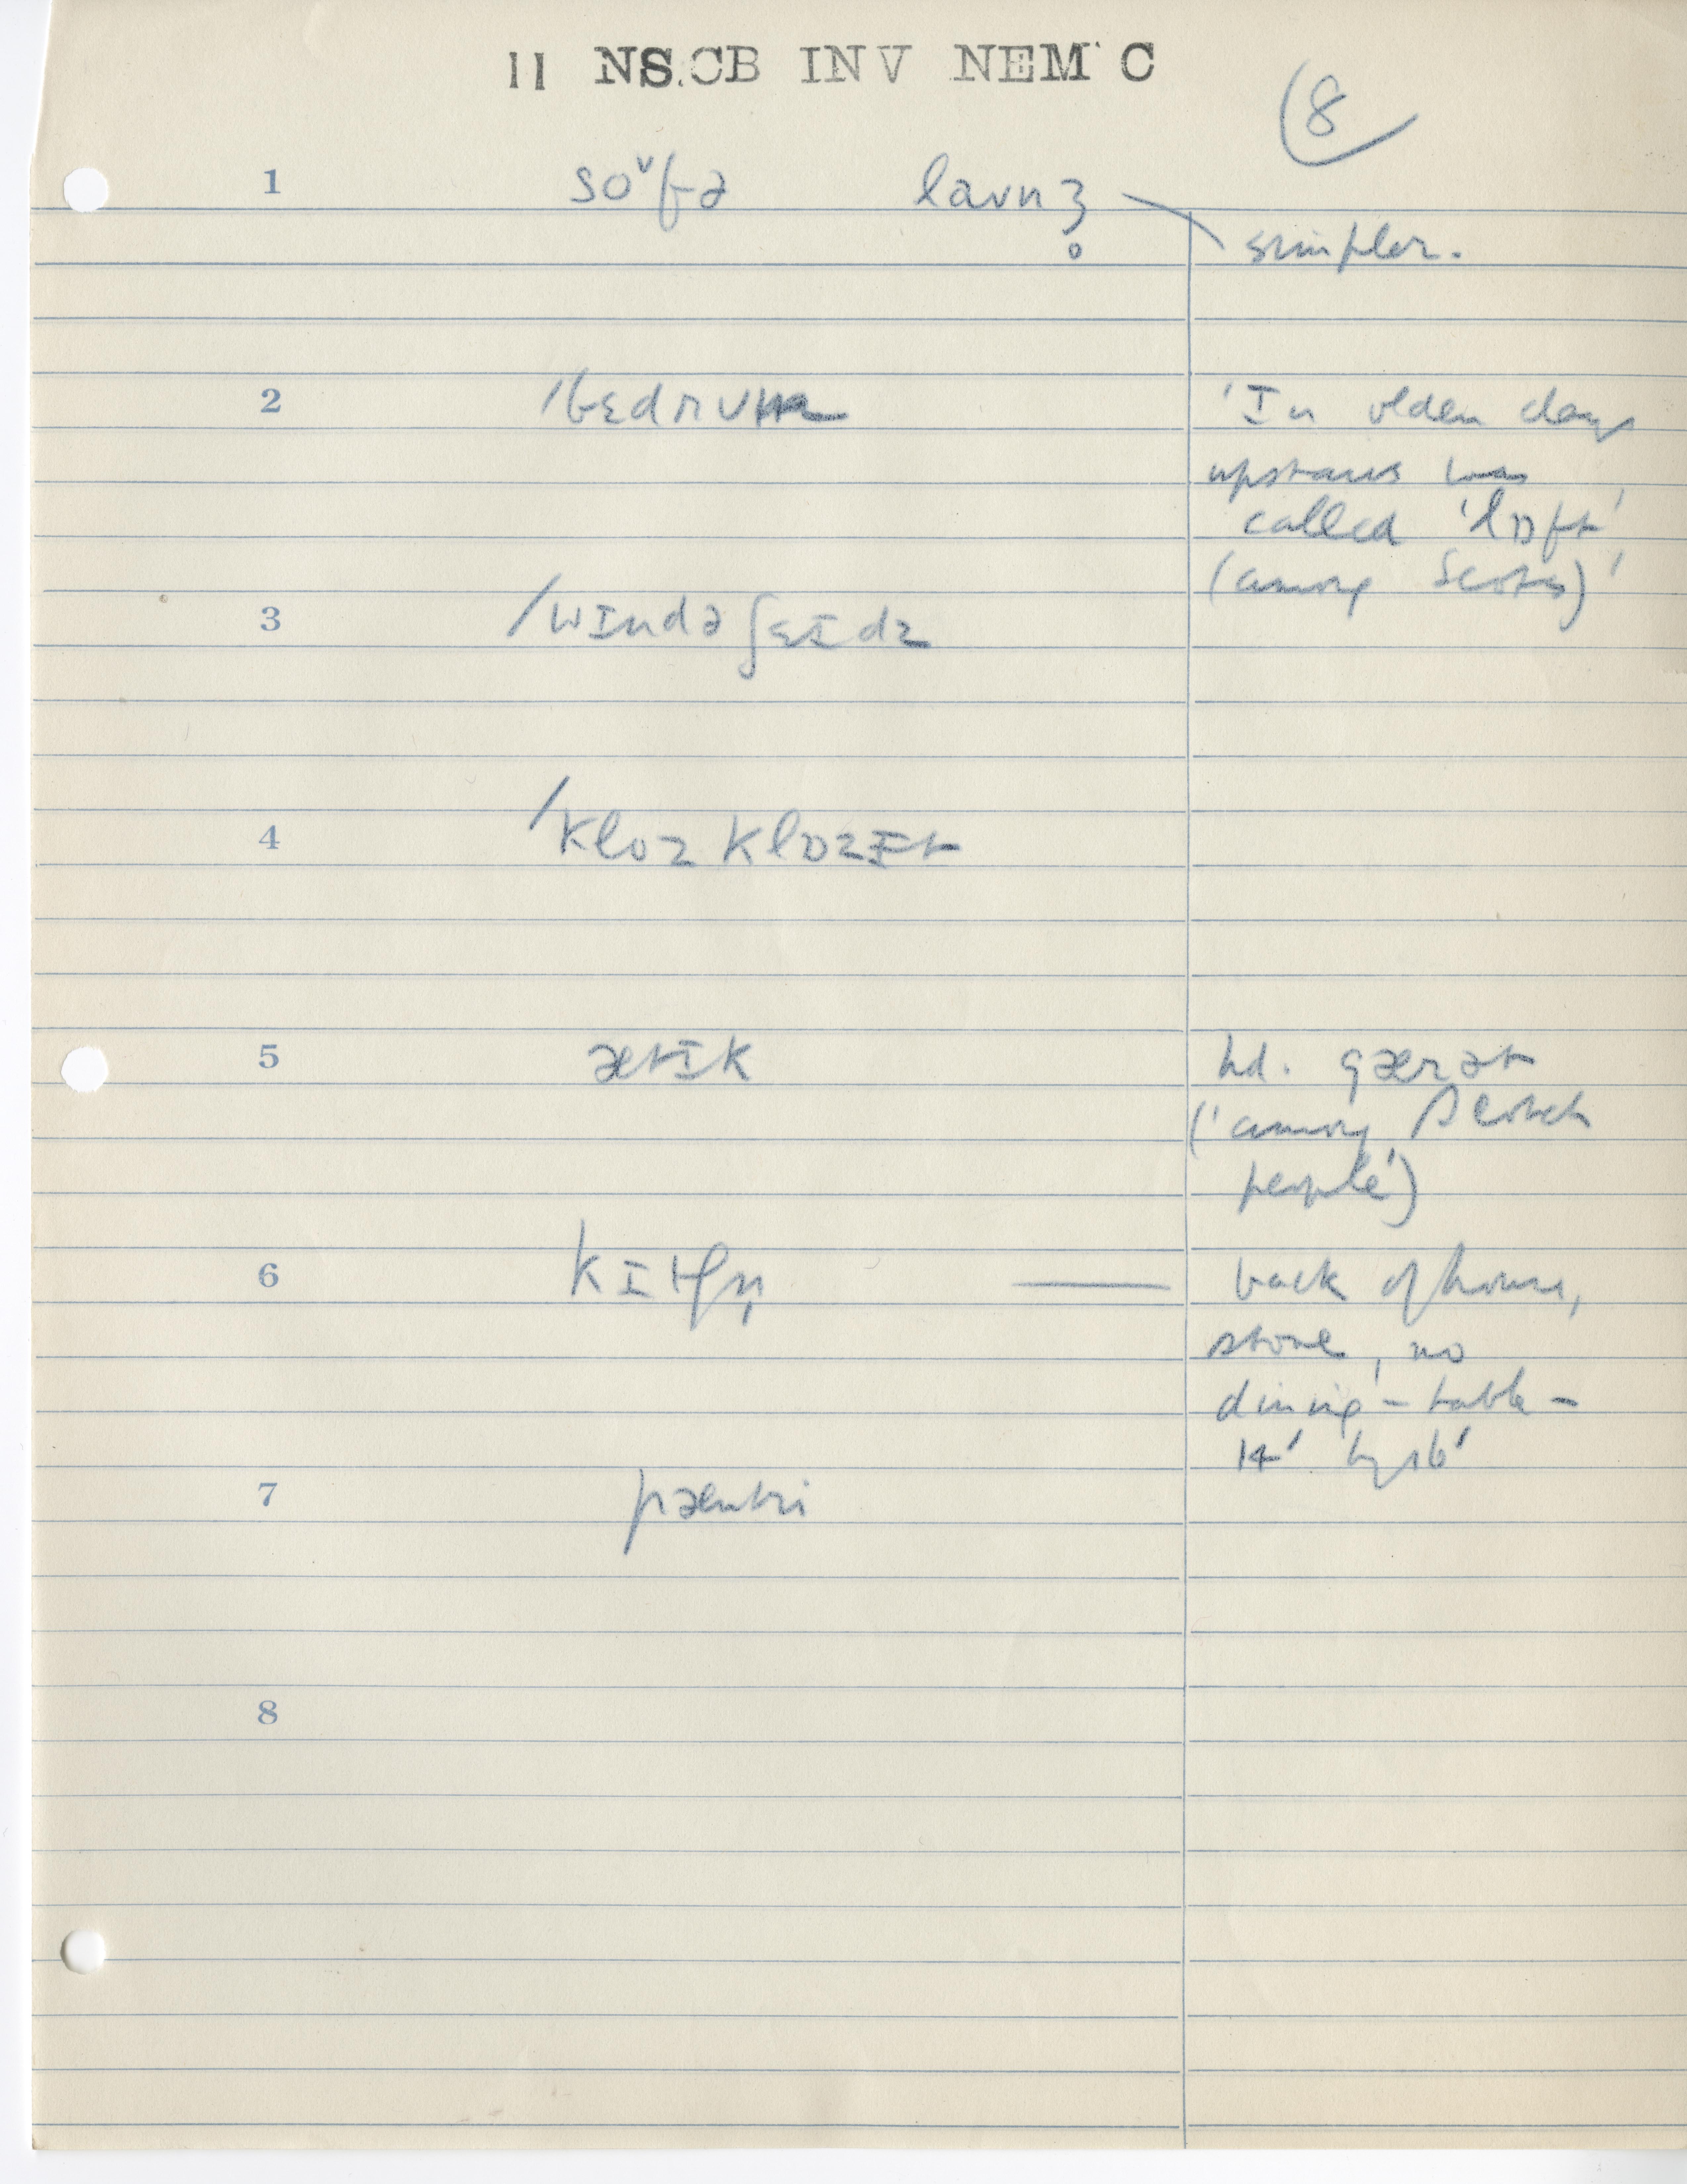 11 NS.CB INV NEM C
8
1 soᵛfə laʊnʒ̥
simpler.
2 /bɛdrʊm 'In olden days
upstairs was
called 'lɒft',
(among Scots)'
3 /wɪndəʃɛɪdz
4 /kloz klɒzɪt
5 ætɪk hd. gærət
('among Scotch
people')
6 kɪtʃn̩ — back of house,
stove, no
dining-table-
14' by 16'
7 pæntri
8